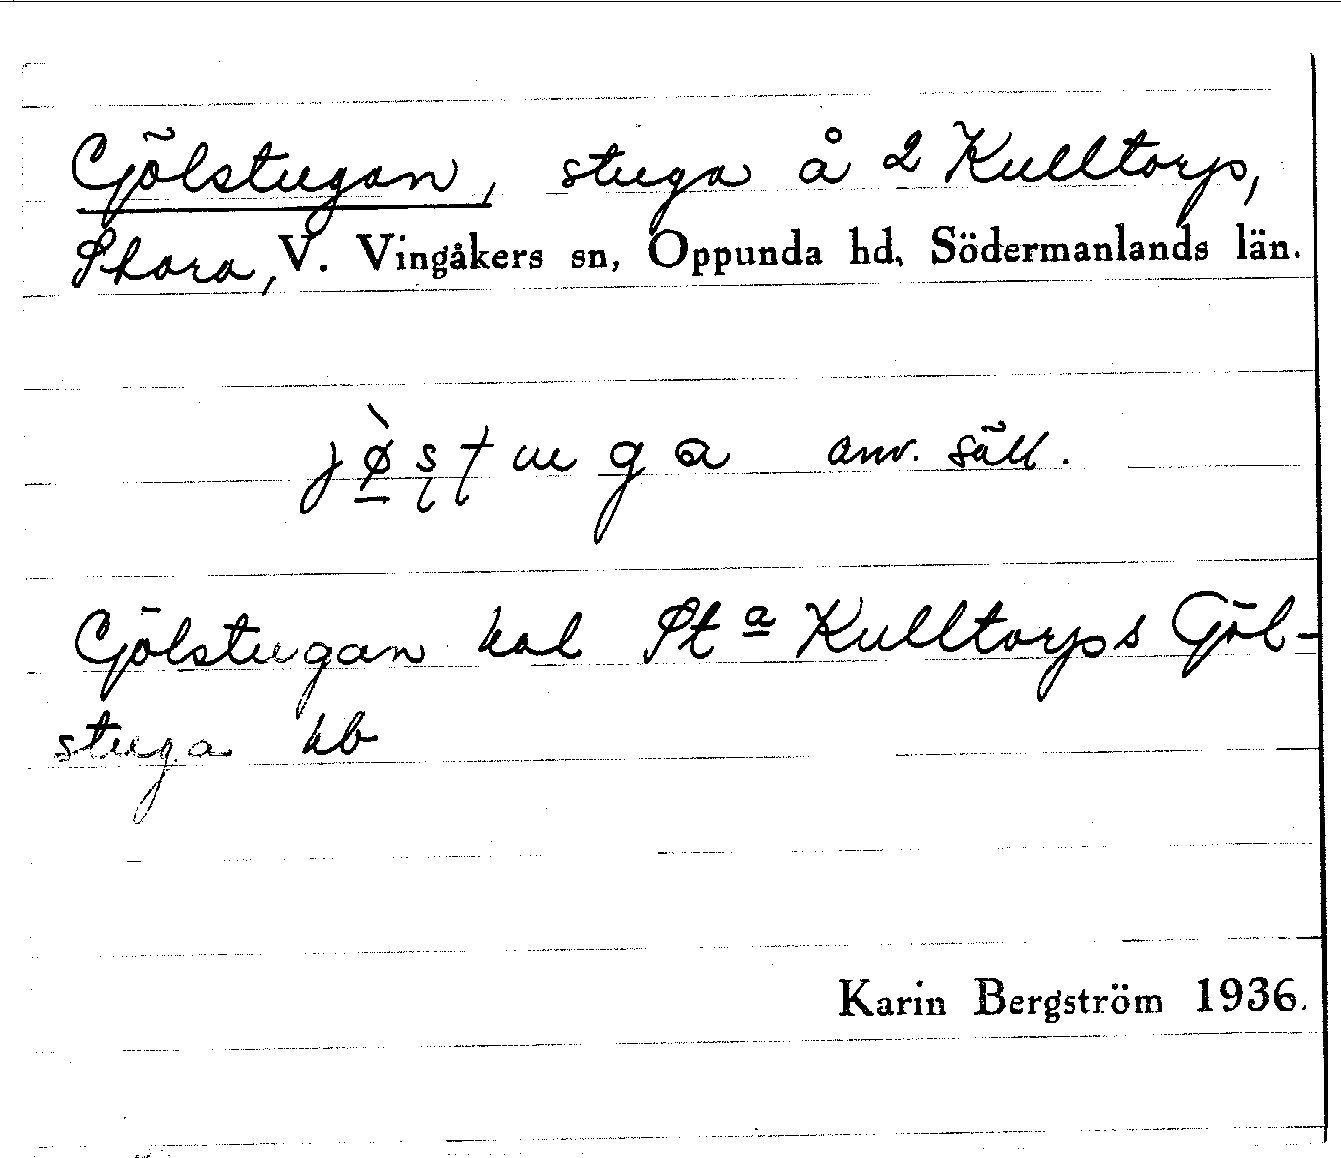 Gölstugan, stuga å 2 Kulltorp,
Stora, V. Vingåkers sn, Oppunda hd, Södermanlands län.
jø̀ʂʈuga anv. säll.
Gölstugan hal St a Kulltorps Göl-
stuga kb
Karin Bergström 1936.